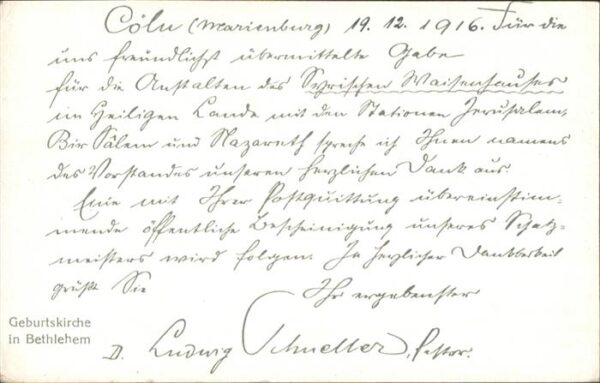 Cöln (Marienburg) 19. 12. 1916. Für die
uns freundlichst übermittelte Gabe
für die Anstalten des Syrischen Waisenhauses
im Heiligen Lande mit den Stationen Jerusalem,
Bir Sâlem und Nazareth spreche ich Ihnen namens
des Vorstandes unseren herzlichen Dank aus.
Eine mit Ihrer Postquittung übereinstim-
mende öffentliche Bescheinigung unseres Schatz-
meisters wird folgen. In herzlicher Dankbarkeit
grüßt Sie Ihr ergebenster
Geburtskirche
in Bethlehem
D. Ludwig Schneller, Pastor.